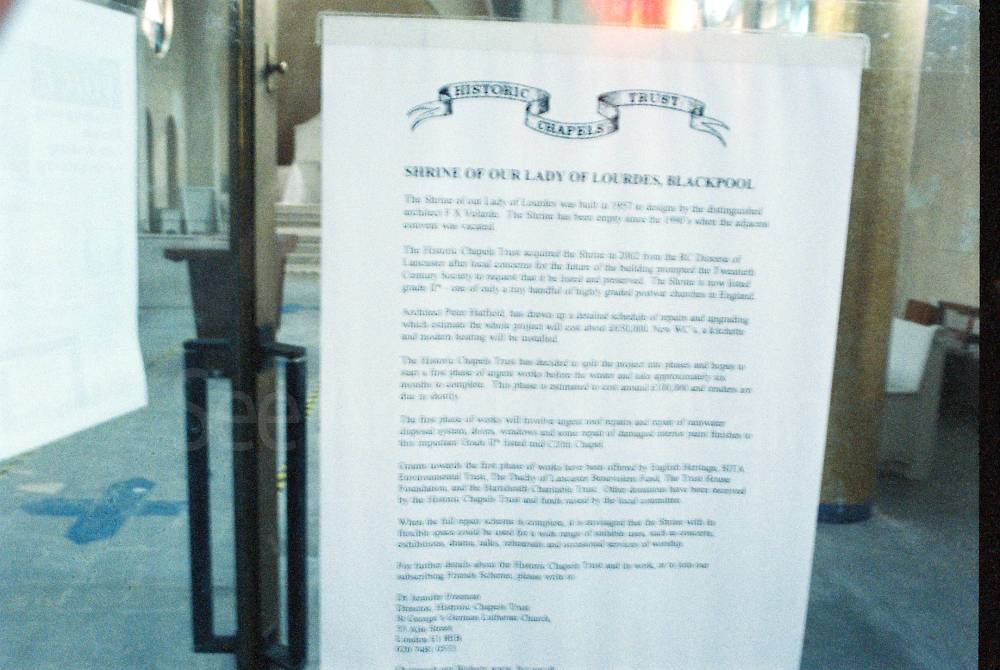 HISTORIC
CHAPELS
TRUST
SHRINE OF OUR LADY OF LOURDES, BLACKPOOL
The Shrine of our Lady of Lourdes was built in 1957 to designs by the distinguished
architect F X Velarde. The Shrine has been empty since the 1990's when the adjacent
convent was vacated.
The Historic Chapels Trust acquired the Shrine in 2002 from the RC Diocese of
Lancaster after local concerns for the future of the building prompted the Twentieth
Century Society to request that it be listed and preserved. The Shrine is now listed
grade II* - one of only a tiny handful of highly graded postwar churches in England.
Architect Peter Hatfield, has drawn up a detailed schedule of repairs and upgrading
which estimate the whole project will cost about £650,000. New WC's, a kitchette
and modern heating will be installed.
The Historic Chapels Trust has decided to split the project into phases and hopes to
start a first phase of urgent works before the winter and take approximately six
months to complete. This phase is estimated to cost around £100,000 and tenders are
due in shortly.
The first phase of works will involve urgent roof repairs and repair of rainwater
disposal system, doors, windows and some repair of damaged interior paint finishes to
this important Grade II* listed mid C20th Chapel.
Grants towards the first phase of works have been offered by English Heritage,
Environmental Trust, The Duchy of Lancaster Benevolent Fund, The Trust House
Foundation, and the Charitable Trust. Other donations have been received
by the Historic Chapels Trust and funds raised by the local committee.
When the full repair scheme is complete, it is envisaged that the Shrine with its
flexible space could be used for a wide range of suitable uses, such as concerts,
exhibitions, drama, talks, rehearsals and occasional services of worship.
For further details about the Historic Chapels Trust and its work, or to join our
subscribing Friends Scheme, please write to
Dr Jennifer Freeman
Director, Historic Chapels Trust
St George's German Lutheran Church,
55 Alie Street
London E1 8EB
020 7481 0533